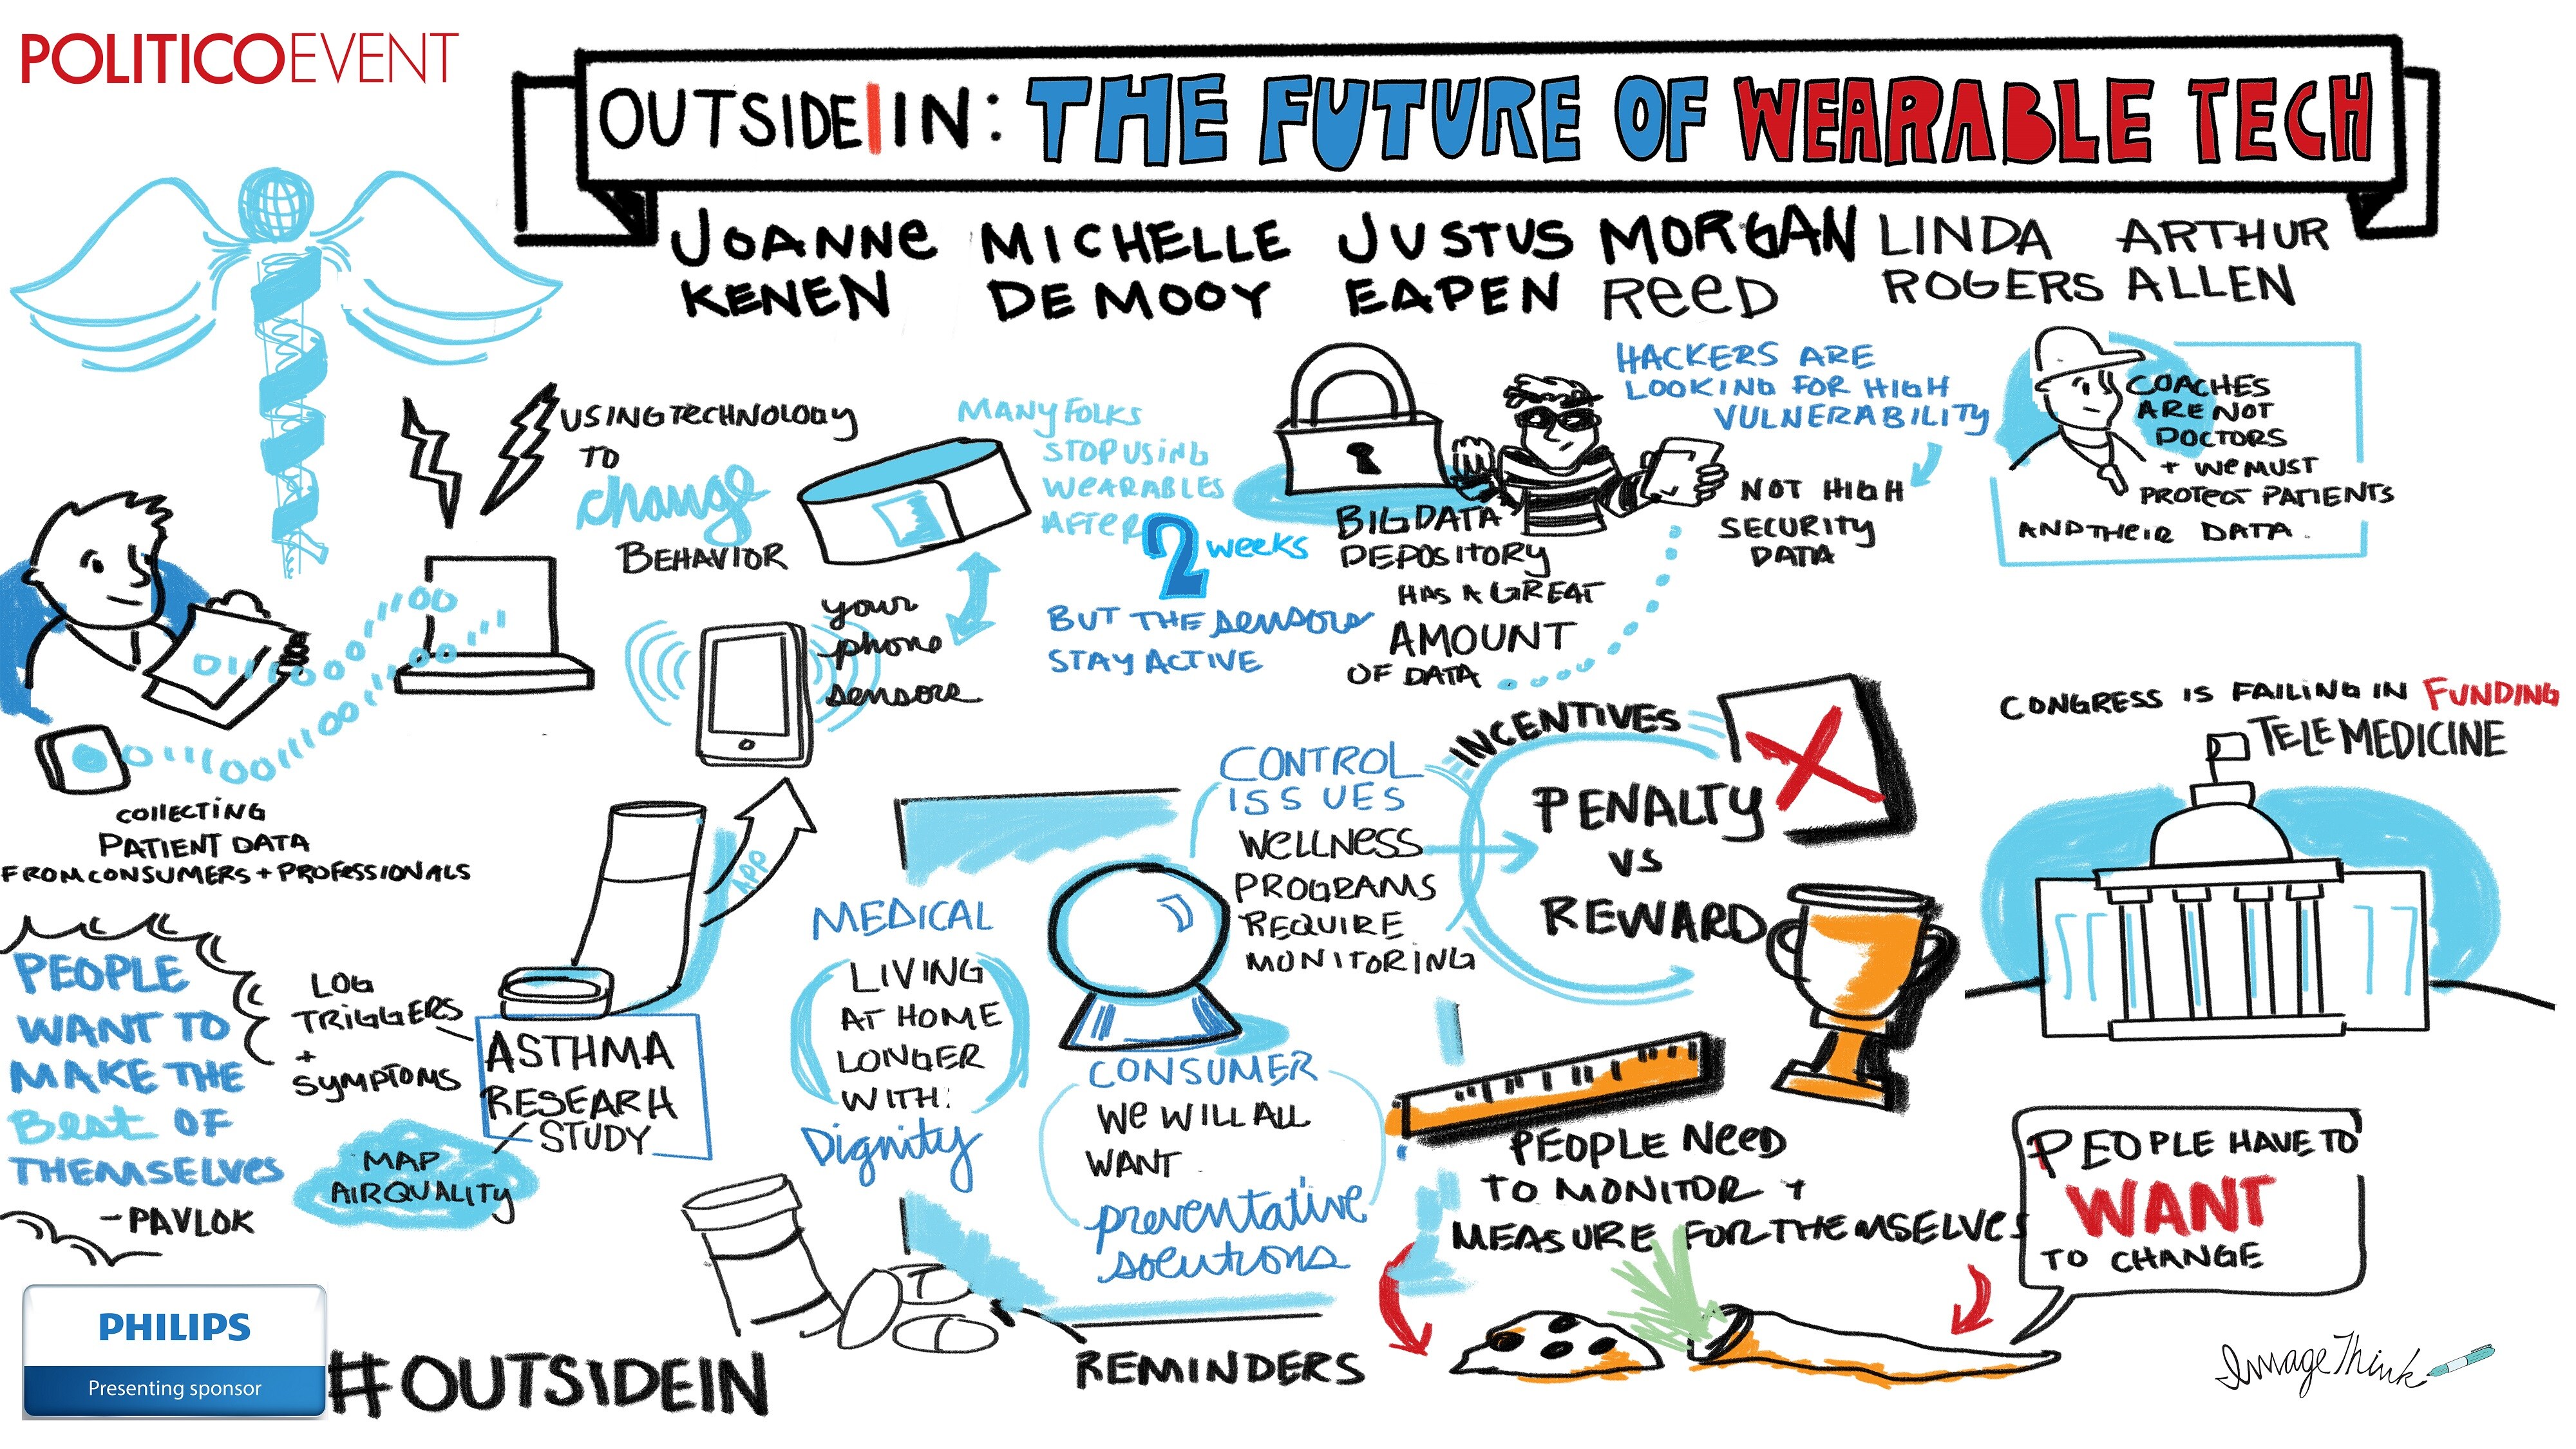 POLITICOEVENT
OUTSIDE|IN: THE FUTURE OF WEARABLE TECH
JOANNE KENEN
MICHELLE DE MOOY
JUSTUS EAPEN
MORGAN REED
LINDA ROGERS
ARTHUR ALLEN
USING TECHNOLOGY
TO
change
BEHAVIOR
MANY FOLKS
STOP USING
WEARABLES
AFTER 2 weeks
BUT THE sensors
STAY ACTIVE
your
phone
sensors
BIG DATA
DEPOSITORY
HAS A GREAT
AMOUNT
OF DATA
HACKERS ARE
LOOKING FOR HIGH
VULNERABILITY
NOT HIGH
SECURITY
DATA
COACHES
ARE NOT
DOCTORS
+ WE MUST
PROTECT PATIENTS
AND THEIR DATA.
011110000
1110011000
011100111001100111
COLLECTING
PATIENT DATA
FROM CONSUMERS + PROFESSIONALS
PEOPLE
WANT TO
MAKE THE
Best OF
THEMSELVES
-PAVLOK
LOG
TRIGGERS
+
SYMPTOMS
ASTHMA
RESEARH
STUDY
MAP
AIRQUALITY
APP
MEDICAL
LIVING
AT HOME
LONGER
WITH:
Dignity
CONTROL
ISSUES
WELLNESS
PROGRAMS
REQUIRE
MONITORING
CONSUMER
WE WILL ALL
WANT
preventative
solutions
INCENTIVES
PENALTY
VS
REWARD
CONGRESS IS FAILING IN FUNDING
TELEMEDICINE
PEOPLE NEED
TO MONITOR +
MEASURE FOR THEMSELVES
PEOPLE HAVE TO
WANT
TO CHANGE
REMINDERS
PHILIPS
Presenting sponsor
#OUTSIDEIN
ImageThink